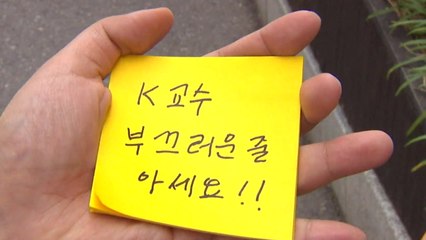 K교수
부끄러운줄
아세요!!